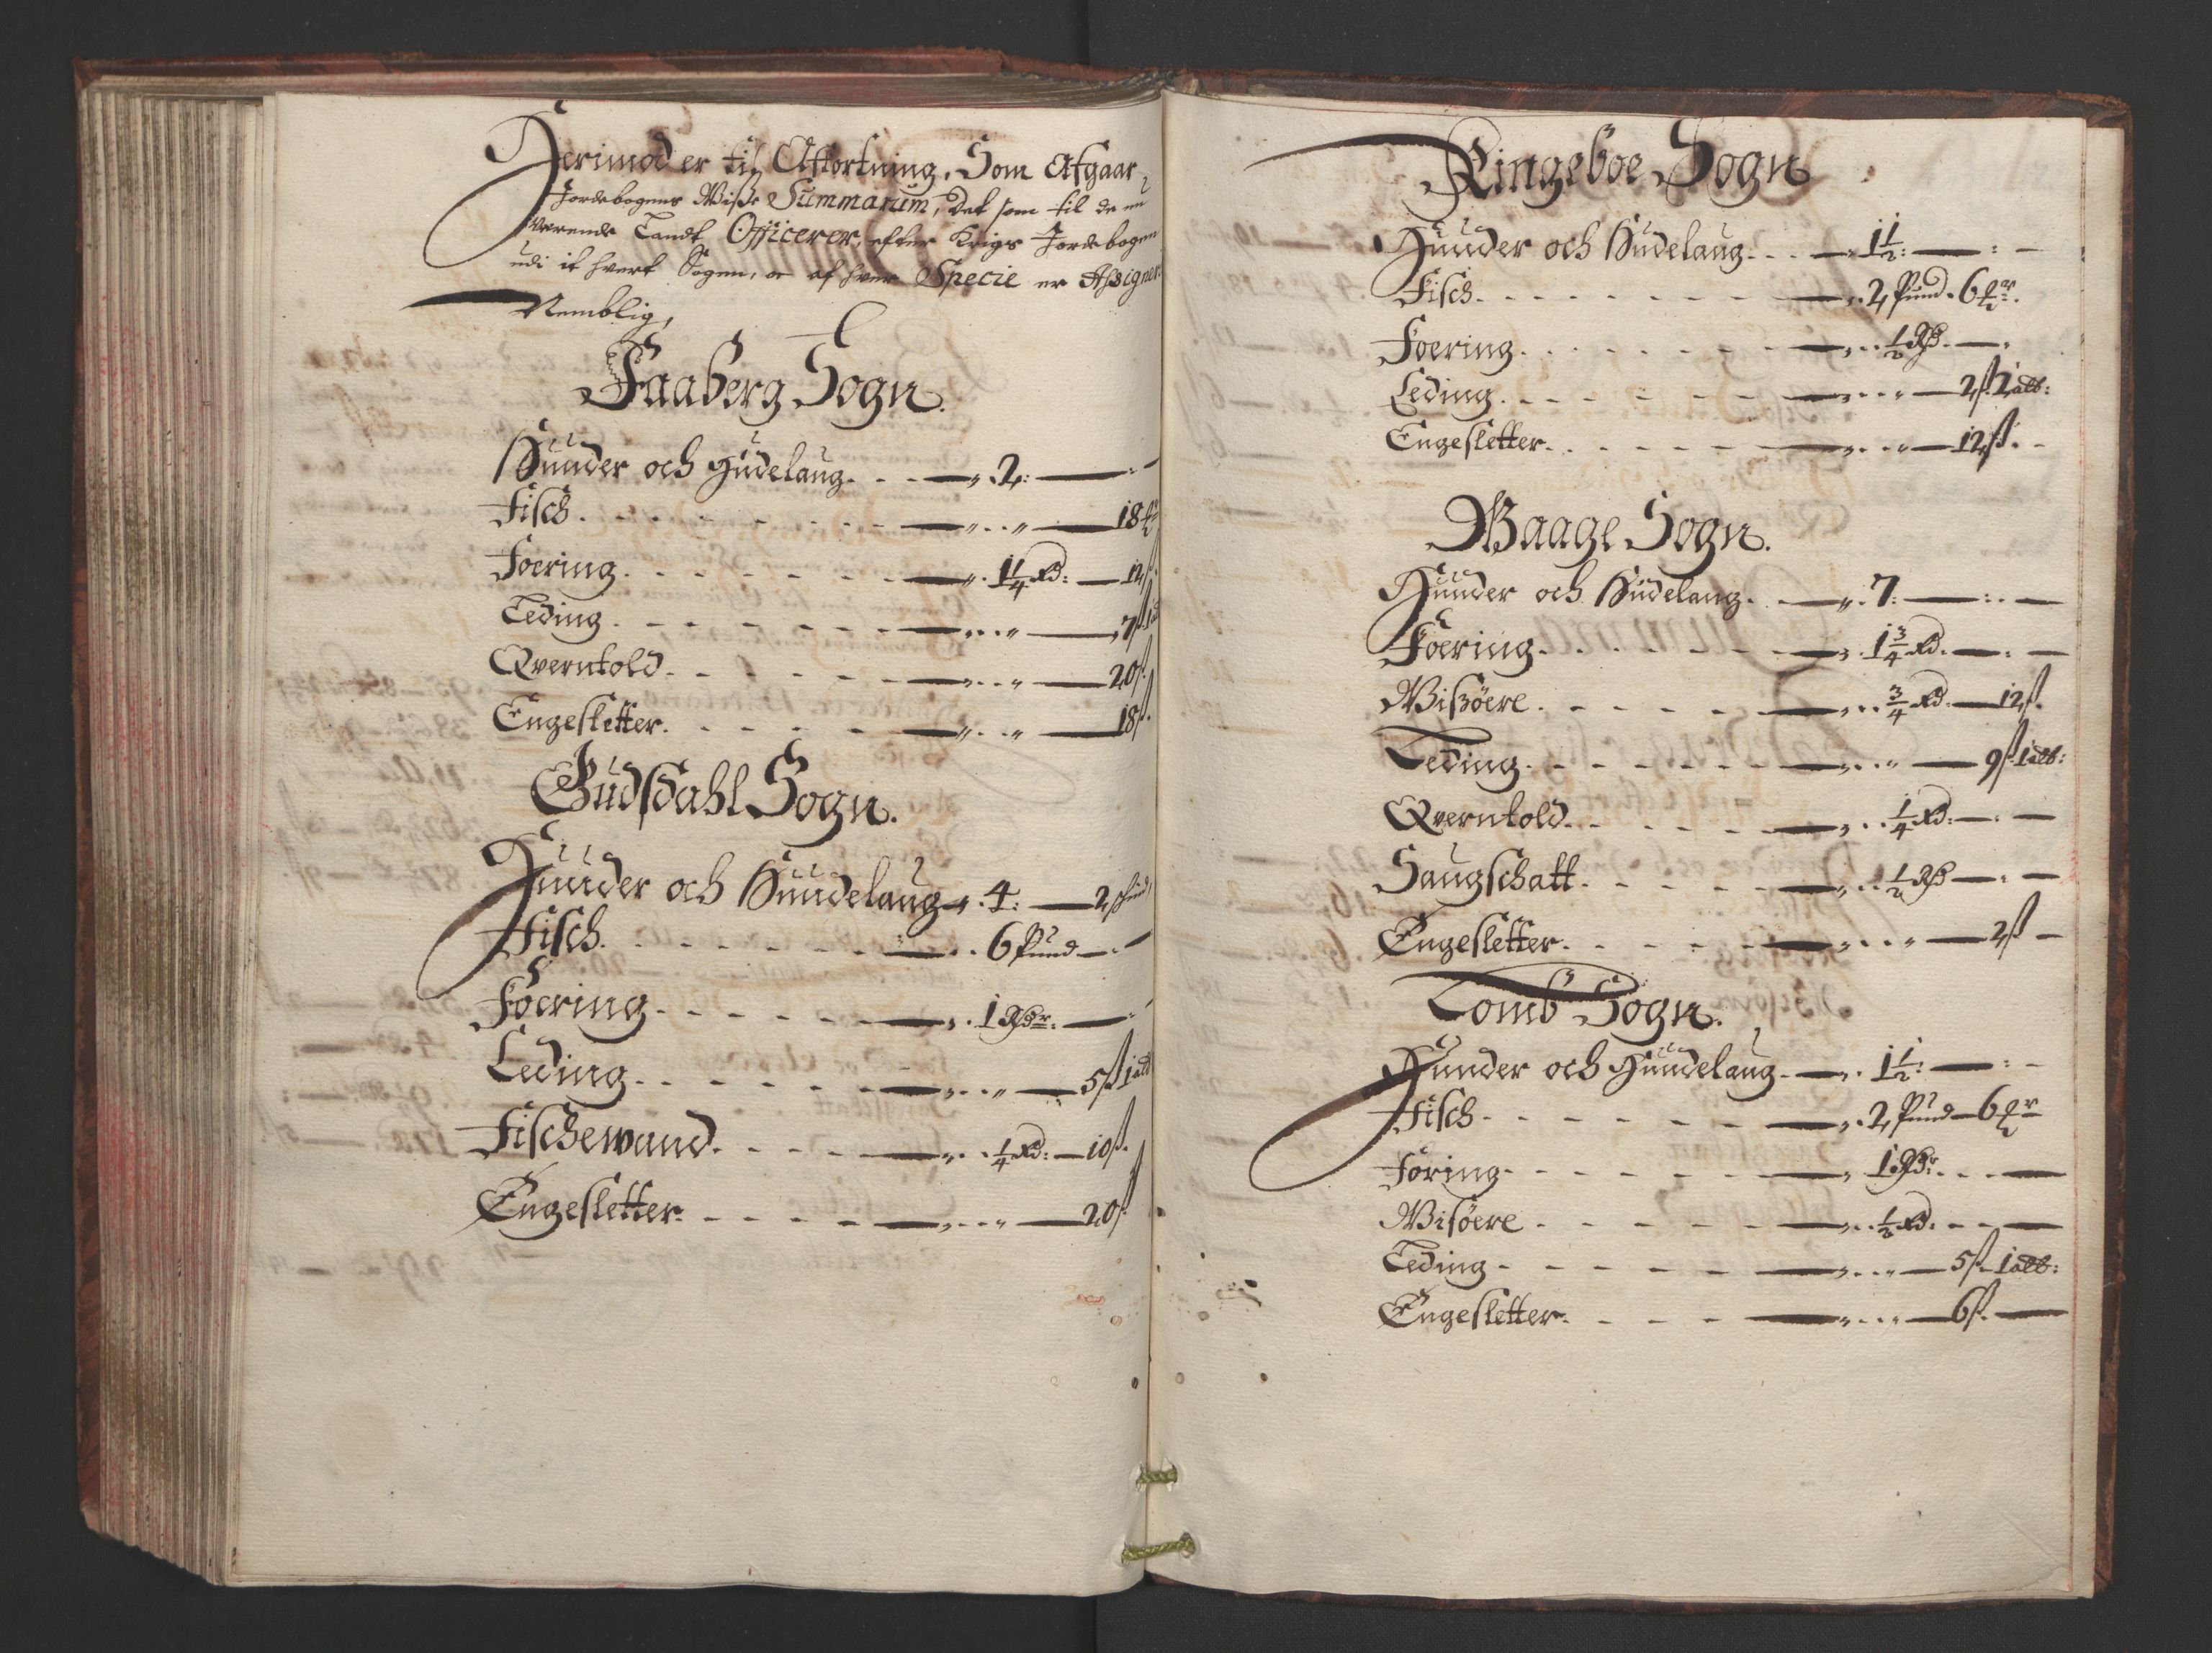 Herimod er til Afkortning, Som Afgaar i
Jordebogens Wiße Summarum, Det som til de nu
værende Landt Officerer, efter Krigs Jordebogen
udi it hvert Sogen, oc af hver Specie er Aßigner
Nemblig,
Faaberg Sogn.
Huuder och Hudelaug. - - 2: -
Fisch. - - 18
Foering. - - 1 1/4 Rd: - 12 ß.
Leding. - - 7 ß 1
Qverntold. - - 20 ß.
Engesletter. - - 18 ß.
Gudsdahl Sogn.
Huuder och Huudelaug 4: - 2
Fisch. - - 6 Pund -
Foering. - - 1 Rdr. -
Leding. - - 5 ß 1 alb
Fischewand. - - 1/4 Rd: - 10 ß.
Engesletter. - - 20 ß
Ringeboe Sogn
Huuder och Hudelaug. - - 1 1/2: -
Fisch. - - 2 Pund. 6
Foering. - - 1/2 Rd. -
Leding. - - 2 ß 2 alb:
Engesletter. - - 12 ß. -
Waage Sogn.
Huuder och Hudelaug. - 7: -
Foering. - - 1 3/4 Rd. -
Wißøere. - - 3/4 Rd. - 12 ß.
Leding. - - 9 ß 1 alb:
Qverntold. - - 1/4 Rd: -
Saugschatt. - - 1/2 Rd -
Engesletter. - - 2 ß -
Lomb Sogn.
Hunder och Huudelaug. - 1 1/2: -
Fisch - - 2 Pund - 6
Føring - - 1 Rdr. -
Wisøere - - 1/2 Rd. -
Leding - - 5 ß - 1 alb:
Engesletter. - - 6 ß. -